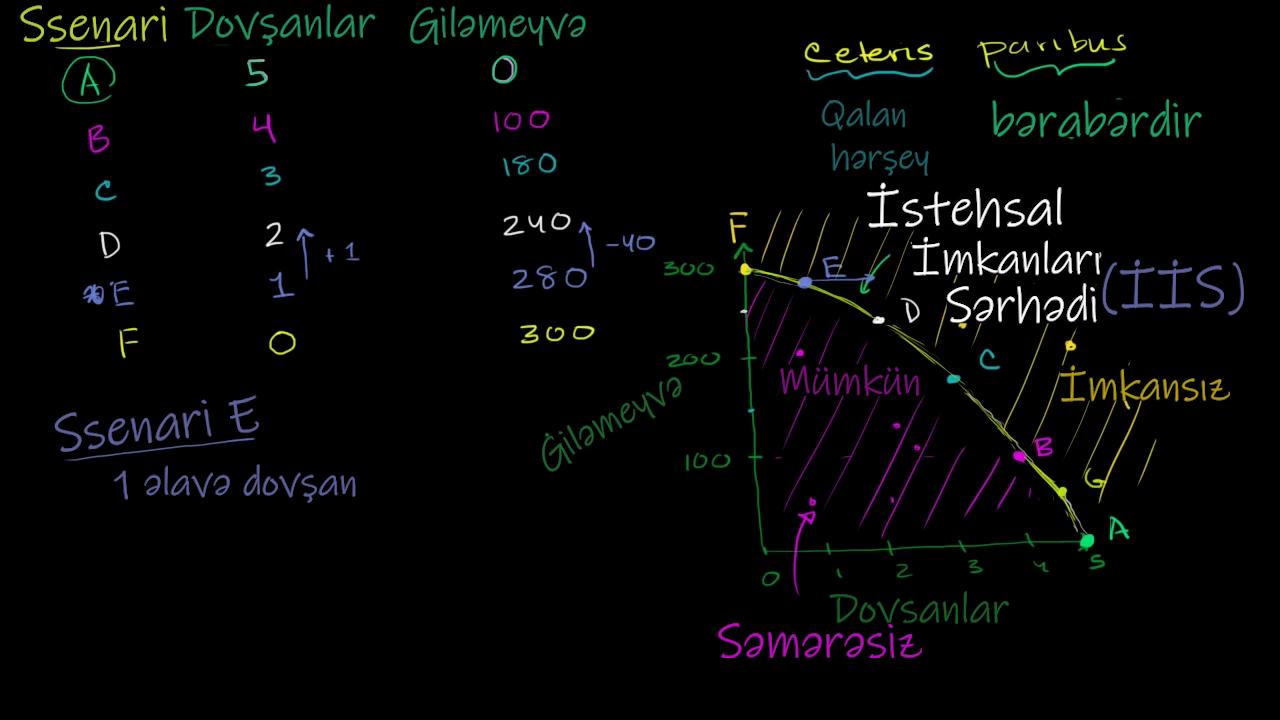 Ssenari Dovşanlar Giləmeyvə
A 5 0
B 4 100
C 3 180
D 2 240
E 1 280
F 0 300
+1
-40
Ssenari E
1 əlavə dovşan
ceteris paribus
Qalan hərşey
bərabərdir
İstehsal
İmkanları
Sərhədi (İİS)
F
300
E
D
200
C
Mümkün
İmkansız
Giləmeyvə
100
B
G
A
0 1 2 3 4 5
Dovsanlar
Səmərəsiz